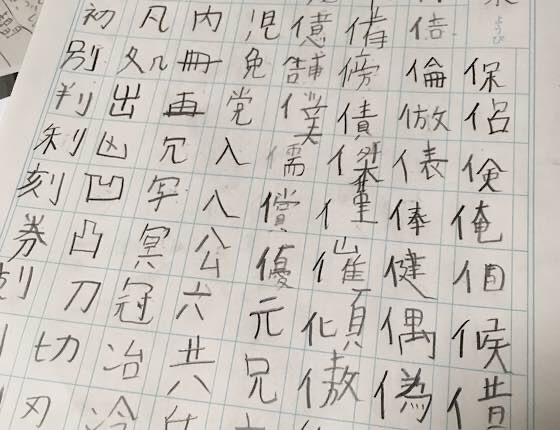 保侶倹俺個候借
倍倫倣俵俸健偶偽
備傍債傑僅催傾傲
億舗僕儒償優元兄
児免党入八公六共
内冊再冗写冥冠冶冷
凡処出凶凹凸刀切刃
初別判利刻券